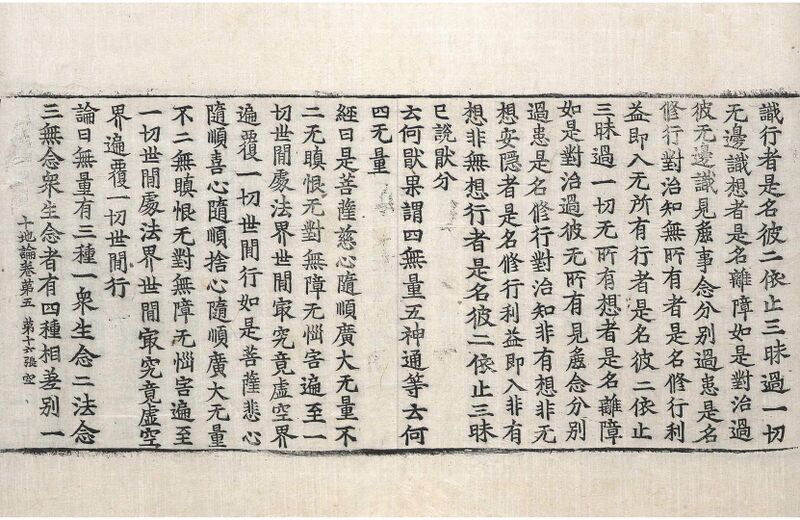 識行者是名彼二依止三昧過一切
无邊識想者是名離障如是對治過
彼无邊識見麁事念分別過患是名
修行對治知無所有者是名修行利
益即入无所有行者是名彼二依止
三昧過一切无所有想者是名離障
如是對治過彼无所有見麁念分別
過患是名修行對治知非有想非无
想安隱者是名修行利益即入非有
想非無想行者是名彼二依止三昧
已說猒分
云何猒果謂四無量五神通等云何
四无量
經曰是菩薩慈心隨順廣大无量不
二无瞋恨无對無障无惱害遍至一
切世間處法界世間冣究竟虛空界
遍覆一切世間行如是菩薩悲心
隨順喜心隨順捨心隨順廣大无量
不二無瞋恨无對無障无惱害遍至
一切世間處法界世間冣究竟虛空
界遍覆一切世間行
論曰無量有三種一衆生念二法念
三無念衆生念者有四種相差別一
十地論卷第五 第十六張 空